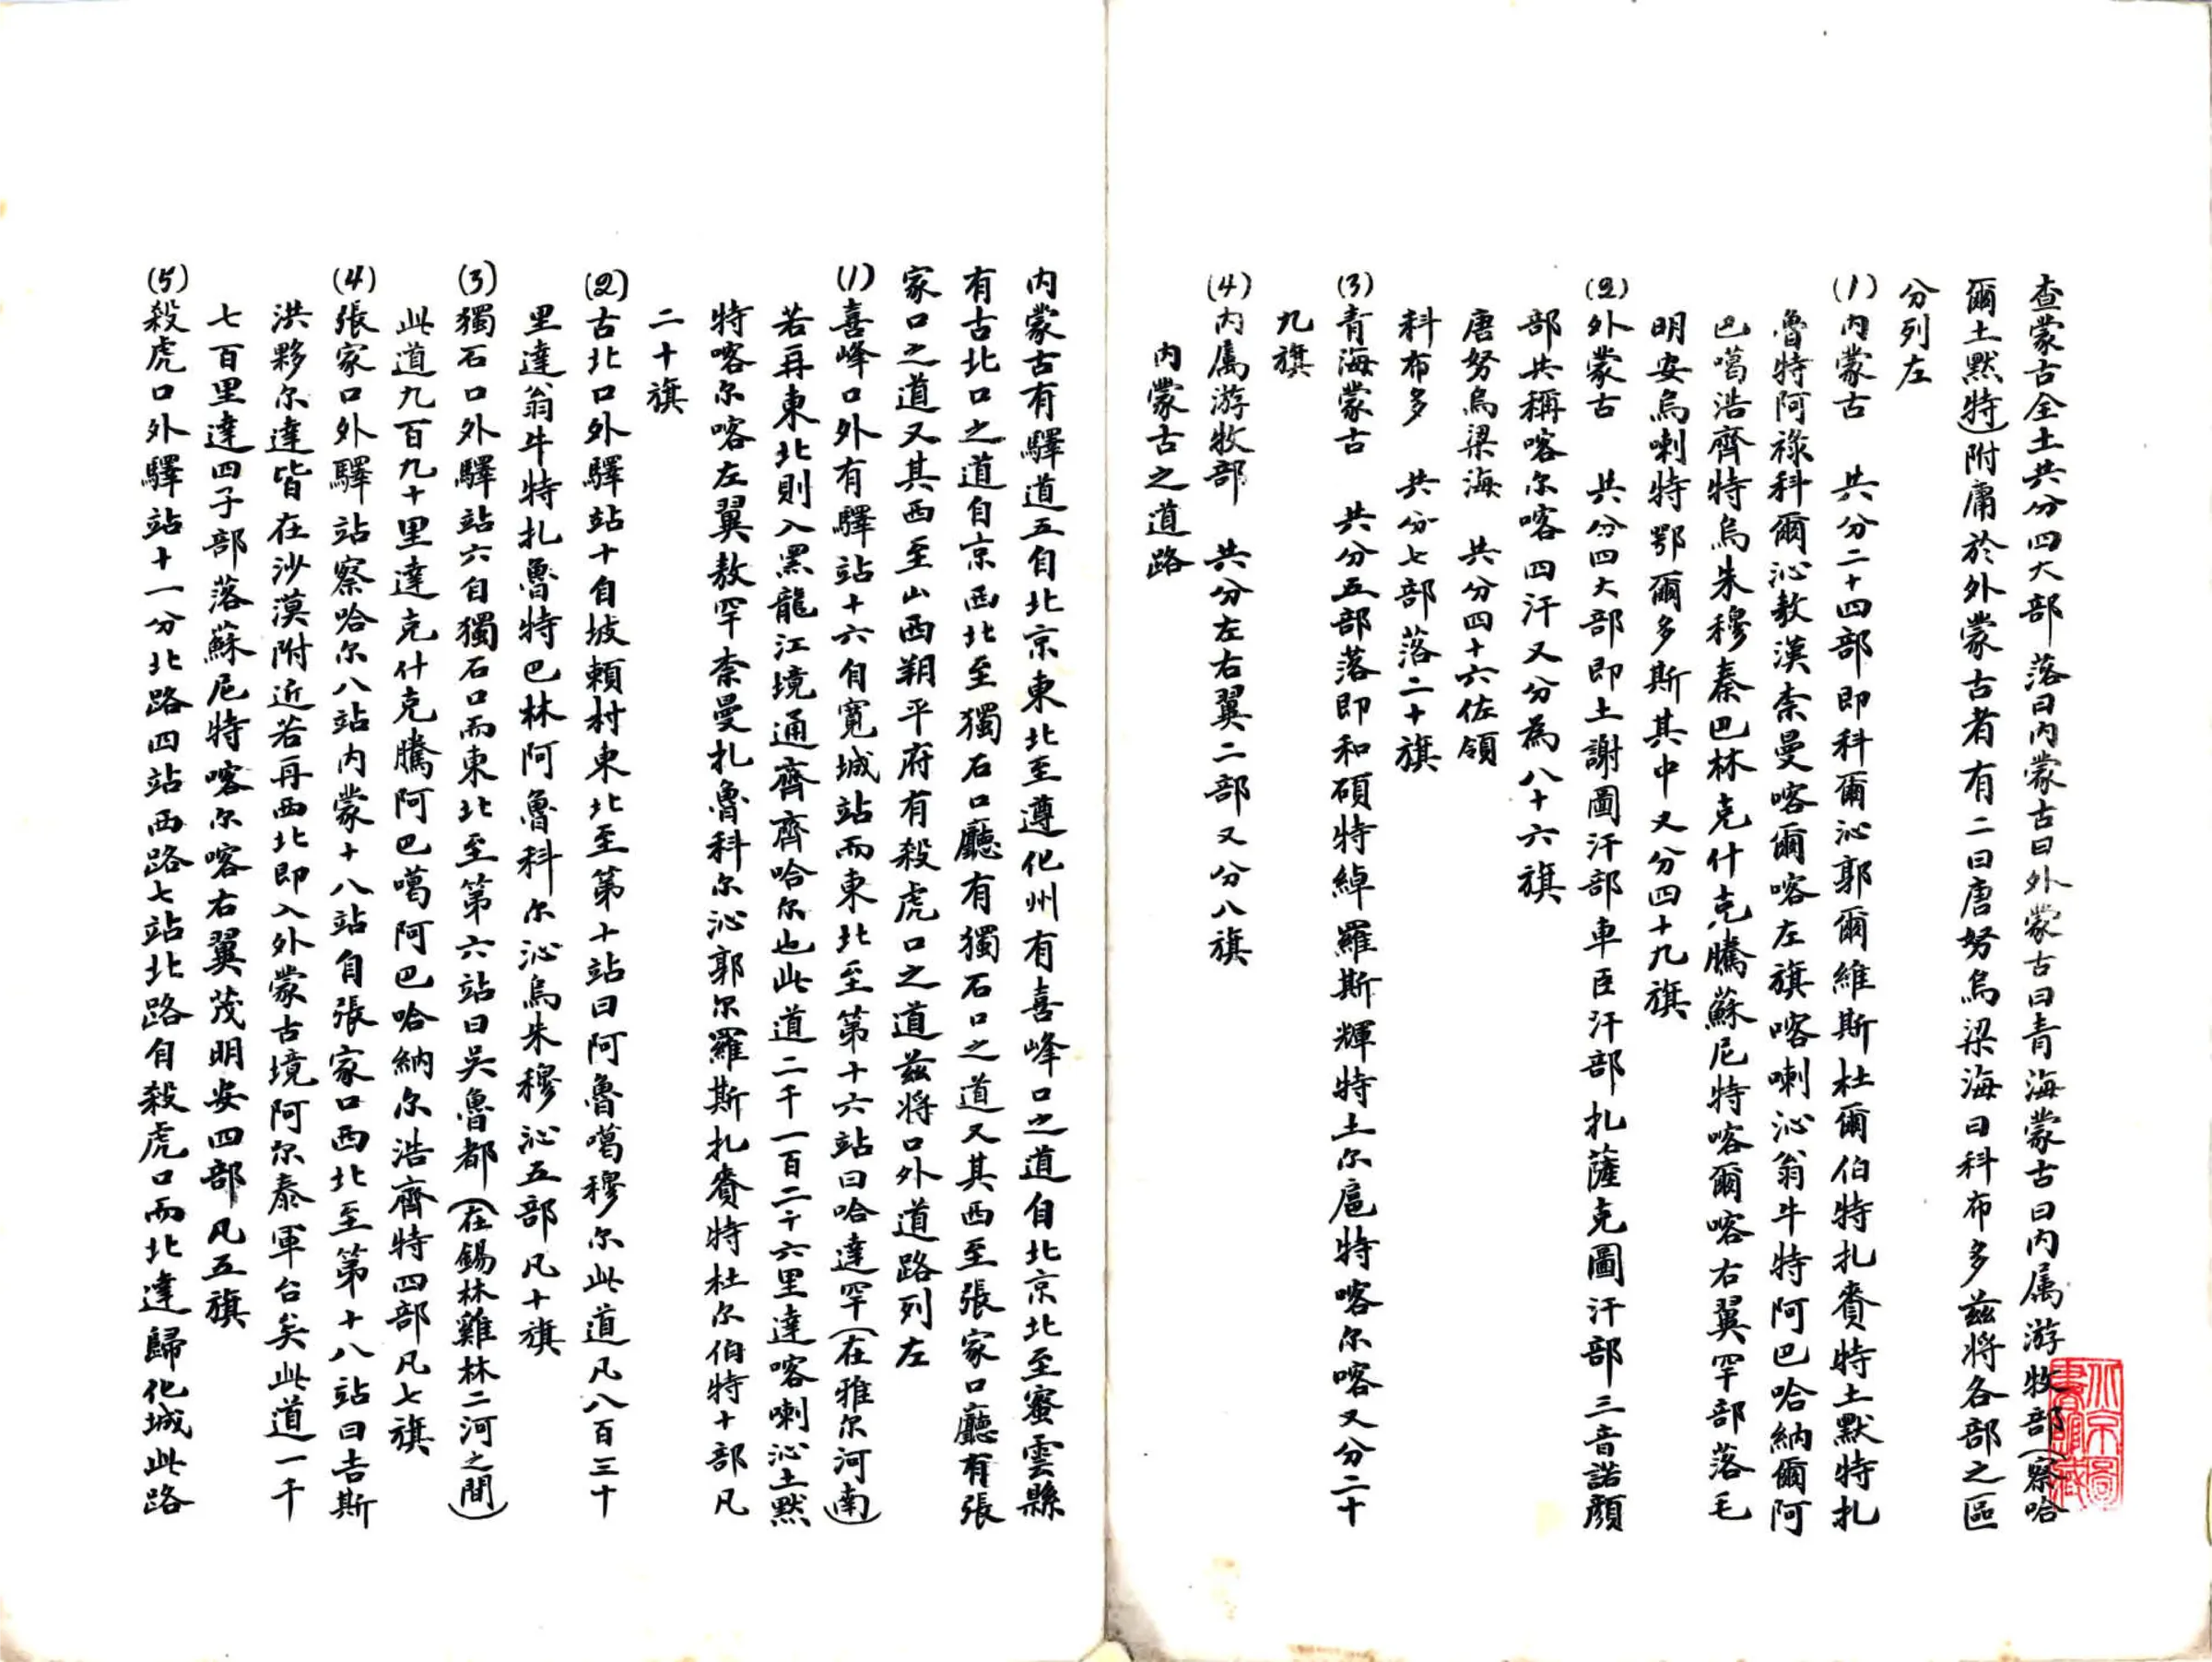 查蒙古全土共分四大部落曰内蒙古曰外蒙古曰青海蒙古曰内属游牧部(察哈
爾土默特)附庸於外蒙古者有二曰唐努烏梁海曰科布多兹將各部之區
分列左
(1)内蒙古　共分二十四部即科爾沁郭爾維斯杜爾伯特扎賚特土默特扎
魯特阿祿科爾沁敖漢柰曼喀爾喀左旗喀喇沁翁牛特阿巴哈納爾阿
巴噶浩齊特烏朱穆秦巴林克什克騰蘇尼特喀爾喀右翼罕部落毛
明安烏喇特鄂爾多斯其中又分四十九旗
(2)外蒙古　共分四大部即土謝圖汗部車臣汗部扎薩克圖汗部三音諾顏
部共稱喀尔喀四汗又分為八十六旗
唐努烏梁海　共分四十六佐領
科布多　共分七部落二十旗
(3)青海蒙古　共分五部落即和碩特綽羅斯輝特土尔扈特喀尔喀又分二十
九旗
(4)内属游牧部　共分左右翼二部又分八旗
内蒙古之道路
内蒙古有驛道五自北京東北至遵化州有喜峰口之道自北京北至蜜雲縣
有古北口之道自京西北至獨石口廳有獨石口之道又其西至張家口廳有張
家口之道又其西至山西朔平府有殺虎口之道兹將口外道路列左
(1)喜峰口外有驛站十六自寬城站而東北至第十六站曰哈達罕(在雅尔河南)
若再東北則入黑龍江境通齊齊哈尔也此道二千一百二十六里達喀喇沁土默
特喀尔喀左翼敖罕柰曼扎魯科尔沁郭尔羅斯扎賚特杜尔伯特十部凡
二十旗
(2)古北口外驛站十自坡賴村東北至第十站曰阿魯噶穆尔此道凡八百三十
里達翁牛特扎魯特巴林阿魯科尔沁烏朱穆沁五部凡十旗
(3)獨石口外驛站六自獨石口而東北至第六站曰吴魯都(在錫林雞林二河之間)
此道九百九十里達克什克騰阿巴噶阿巴哈納尔浩齊特四部凡七旗
(4)張家口外驛站察哈尔八站内蒙十八站自張家口西北至第十八站曰吉斯
洪夥尔達皆在沙漠附近若再西北即入外蒙古境阿尔泰軍台矣此道一千
七百里達四子部落蘇尼特喀尔喀右翼茂明安四部凡五旗
(5)殺虎口外驛站十一分北路四站西路七站北路自殺虎口而北達歸化城此路
北京圖
書館藏